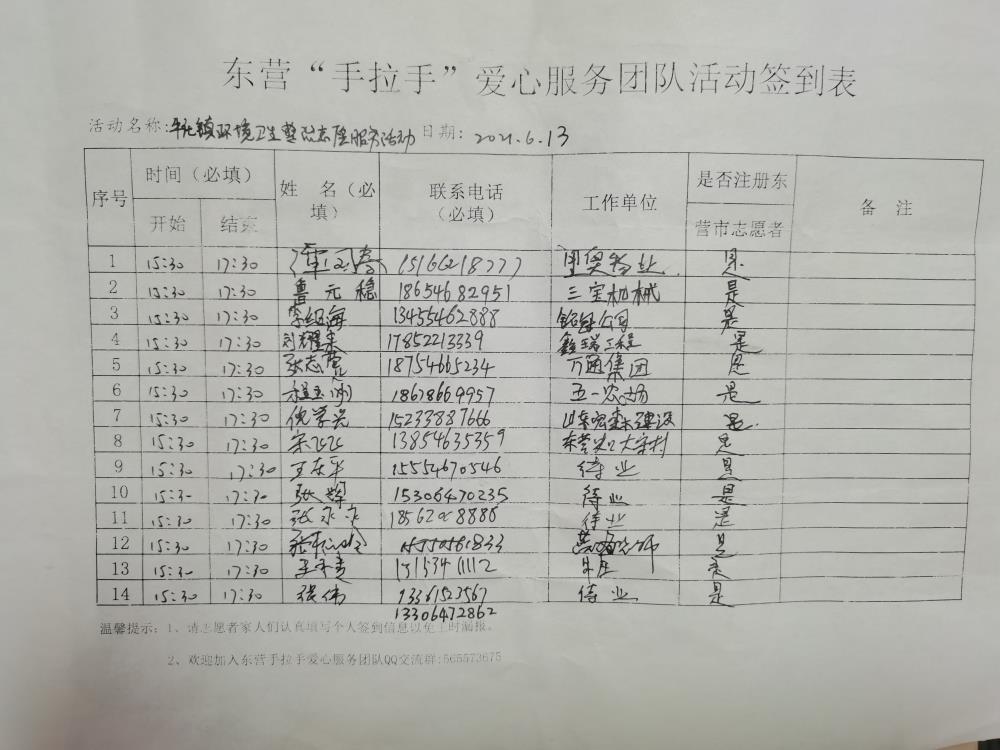 东营“手拉手”爱心服务团队活动签到表
活动名称: 镇环境卫生整治志愿服务活动 日期: 2021.6.13
序号 时间（必填） 姓 名（必填） 联系电话（必填） 工作单位 是否注册东营市志愿者 备 注
开始 结束
1 15:30 17:30 15166218777 物业 是
2 15:30 17:30 鲁元稳 18654682951 三宝机械 是
3 15:30 17:30 李绍海 13455462888 公司 是
4 15:30 17:30 刘耀来 17852213339 鑫瑞工程 是
5 15:30 17:30 张志营 18754665234 万通集团 是
6 15:30 17:30 程玉湖 18678669957 五一农场 是
7 15:30 17:30 倪学兴 15233887666 山东宏森建设 是
8 15:30 17:30 宋飞飞 13854635359 东营 大宋村 是
9 15:30 17:30 王在平 15554670546 待业 是
10 15:30 17:30 张辉 15306470235 待业 是
11 15:30 17:30 张永 待业 是
12 15:30 17:30 是
13 15:30 17:30
14 15:30 17:30 张伟 13361523567 待业 是
13306472862
温馨提示: 1、请志愿者家人们认真填写个人签到信息以免工时漏报。
2、欢迎加入东营手拉手爱心服务团队QQ交流群:565573675